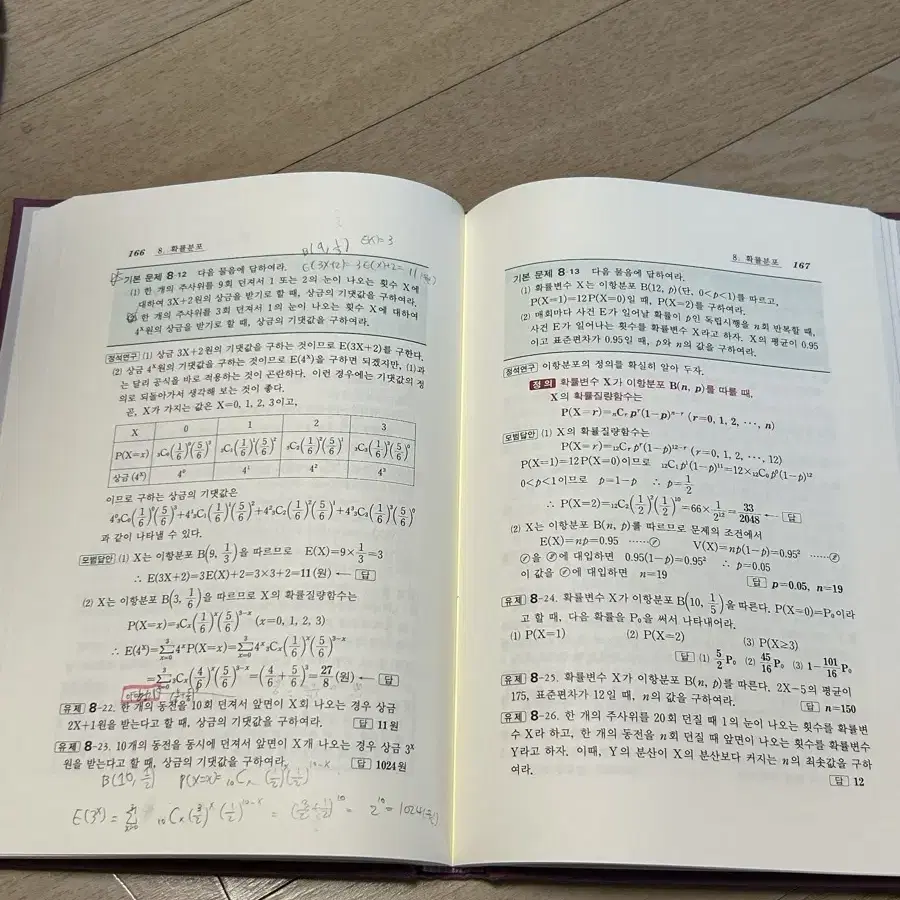 166 8. 확률분포
B(9, 1/3) E(X)=3
E(3X+2)=3E(X)+2=11
기본 문제 8-12 다음 물음에 답하여라.
(1) 한 개의 주사위를 9회 던져서 1 또는 2의 눈이 나오는 횟수 X에
대하여 3X+2원의 상금을 받기로 할 때, 상금의 기댓값을 구하여라.
(2) 한 개의 주사위를 3회 던져서 1의 눈이 나오는 횟수 X에 대하여
4ˣ원의 상금을 받기로 할 때, 상금의 기댓값을 구하여라.
정석연구 (1) 상금 3X+2원의 기댓값을 구하는 것이므로 E(3X+2)를 구한다.
(2) 상금 4ˣ원의 기댓값을 구하는 것이므로 E(4ˣ)을 구하면 되겠지만, (1)과
는 달리 공식을 바로 적용하는 것이 곤란하다. 이런 경우에는 기댓값의 정
의로 되돌아가서 생각해 보는 것이 좋다.
곧, X가 가지는 값은 X=0, 1, 2, 3이고,
X 0 1 2 3
P(X=x) ₃C₀(1/6)⁰(5/6)³ ₃C₁(1/6)¹(5/6)² ₃C₂(1/6)²(5/6)¹ ₃C₃(1/6)³(5/6)⁰
상금 (4ˣ) 4⁰ 4¹ 4² 4³
이므로 구하는 상금의 기댓값은
4⁰₃C₀(1/6)⁰(5/6)³+4¹₃C₁(1/6)¹(5/6)²+4²₃C₂(1/6)²(5/6)¹+4³₃C₃(1/6)³(5/6)⁰
과 같이 나타낼 수 있다.
모범답안 (1) X는 이항분포 B(9, 1/3)을 따르므로 E(X)=9×1/3=3
∴ E(3X+2)=3E(X)+2=3×3+2=11(원) ← 답
(2) X는 이항분포 B(3, 1/6)을 따르므로 X의 확률질량함수는
P(X=x)=₃Cₓ(1/6)ˣ(5/6)³⁻ˣ (x=0, 1, 2, 3)
∴ E(4ˣ)=Σ[x=0, 3]4ˣP(X=x)=Σ[x=0, 3]4ˣ₃Cₓ(1/6)ˣ(5/6)³⁻ˣ
=Σ[x=0, 3]₃Cₓ(4/6)ˣ(5/6)³⁻ˣ=(4/6+5/6)³=27/8(원) ← 답
유제 8-22. 한 개의 동전을 10회 던져서 앞면이 X회 나오는 경우 상금
2X+1원을 받는다고 할 때, 상금의 기댓값을 구하여라. 답 11원
유제 8-23. 10개의 동전을 동시에 던져서 앞면이 X개 나오는 경우 상금 3ˣ
원을 받는다고 할 때, 상금의 기댓값을 구하여라. 답 1024원
B(10, 1/2) P(X=x)=₁₀Cₓ(1/2)ˣ(1/2)¹⁰⁻ˣ
E(3ˣ)=Σ ₁₀Cₓ(3/2)ˣ(1/2)¹⁰⁻ˣ = (3/2+1/2)¹⁰ = 2¹⁰=1024(원)
8. 확률분포 167
기본 문제 8-13 다음 물음에 답하여라.
(1) 확률변수 X가 이항분포 B(12, p)(단, 0<p<1)를 따르고,
P(X=1)=12P(X=0)일 때, P(X=2)를 구하여라.
(2) 매회마다 사건 E가 일어날 확률이 p인 독립시행을 n회 반복할 때,
사건 E가 일어나는 횟수를 확률변수 X라고 하자. X의 평균이 0.95
이고 표준편차가 0.95일 때, p와 n의 값을 구하여라.
정석연구 이항분포의 정의를 확실히 알아 두자.
정의 확률변수 X가 이항분포 B(n, p)를 따를 때,
X의 확률질량함수는
P(X=r)=ₙCᵣ pʳ(1−p)ⁿ⁻ʳ (r=0, 1, 2, ⋯, n)
모범답안 (1) X의 확률질량함수는
P(X=r)=₁₂Cᵣ pʳ(1−p)¹²⁻ʳ (r=0, 1, 2, ⋯, 12)
P(X=1)=12P(X=0)이므로 ₁₂C₁p¹(1−p)¹¹=12×₁₂C₀p⁰(1−p)¹²
0<p<1이므로 p=1−p ∴ p=1/2
∴ P(X=2)=₁₂C₂(1/2)²(1/2)¹⁰=66×1/2¹²=33/2048 ← 답
(2) X는 이항분포 B(n, p)를 따르므로 문제의 조건에서
E(X)=np=0.95 ⋯⋯㉠ V(X)=np(1−p)=0.95² ⋯⋯㉡
㉠을 ㉡에 대입하면 0.95(1−p)=0.95² ∴ p=0.05
이 값을 ㉠에 대입하면 n=19 답 p=0.05, n=19
유제 8-24. 확률변수 X가 이항분포 B(10, 1/5)을 따른다. P(X=0)=P₀이라
고 할 때, 다음 확률을 P₀을 써서 나타내어라.
(1) P(X=1) (2) P(X=2) (3) P(X≥3)
답 (1) 5/2 P₀ (2) 45/16 P₀ (3) 1−101/16 P₀
유제 8-25. 확률변수 X가 이항분포 B(n, p)를 따른다. 2X−5의 평균이
175, 표준편차가 12일 때, n의 값을 구하여라. 답 n=150
유제 8-26. 한 개의 주사위를 20회 던질 때 1의 눈이 나오는 횟수를 확률변
수 X라 하고, 한 개의 동전을 n회 던질 때 앞면이 나오는 횟수를 확률변수
Y라고 하자. 이때, Y의 분산이 X의 분산보다 커지는 n의 최솟값을 구하
여라. 답 12